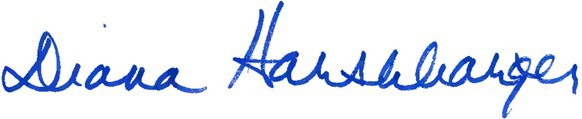 Diana Harshbarger